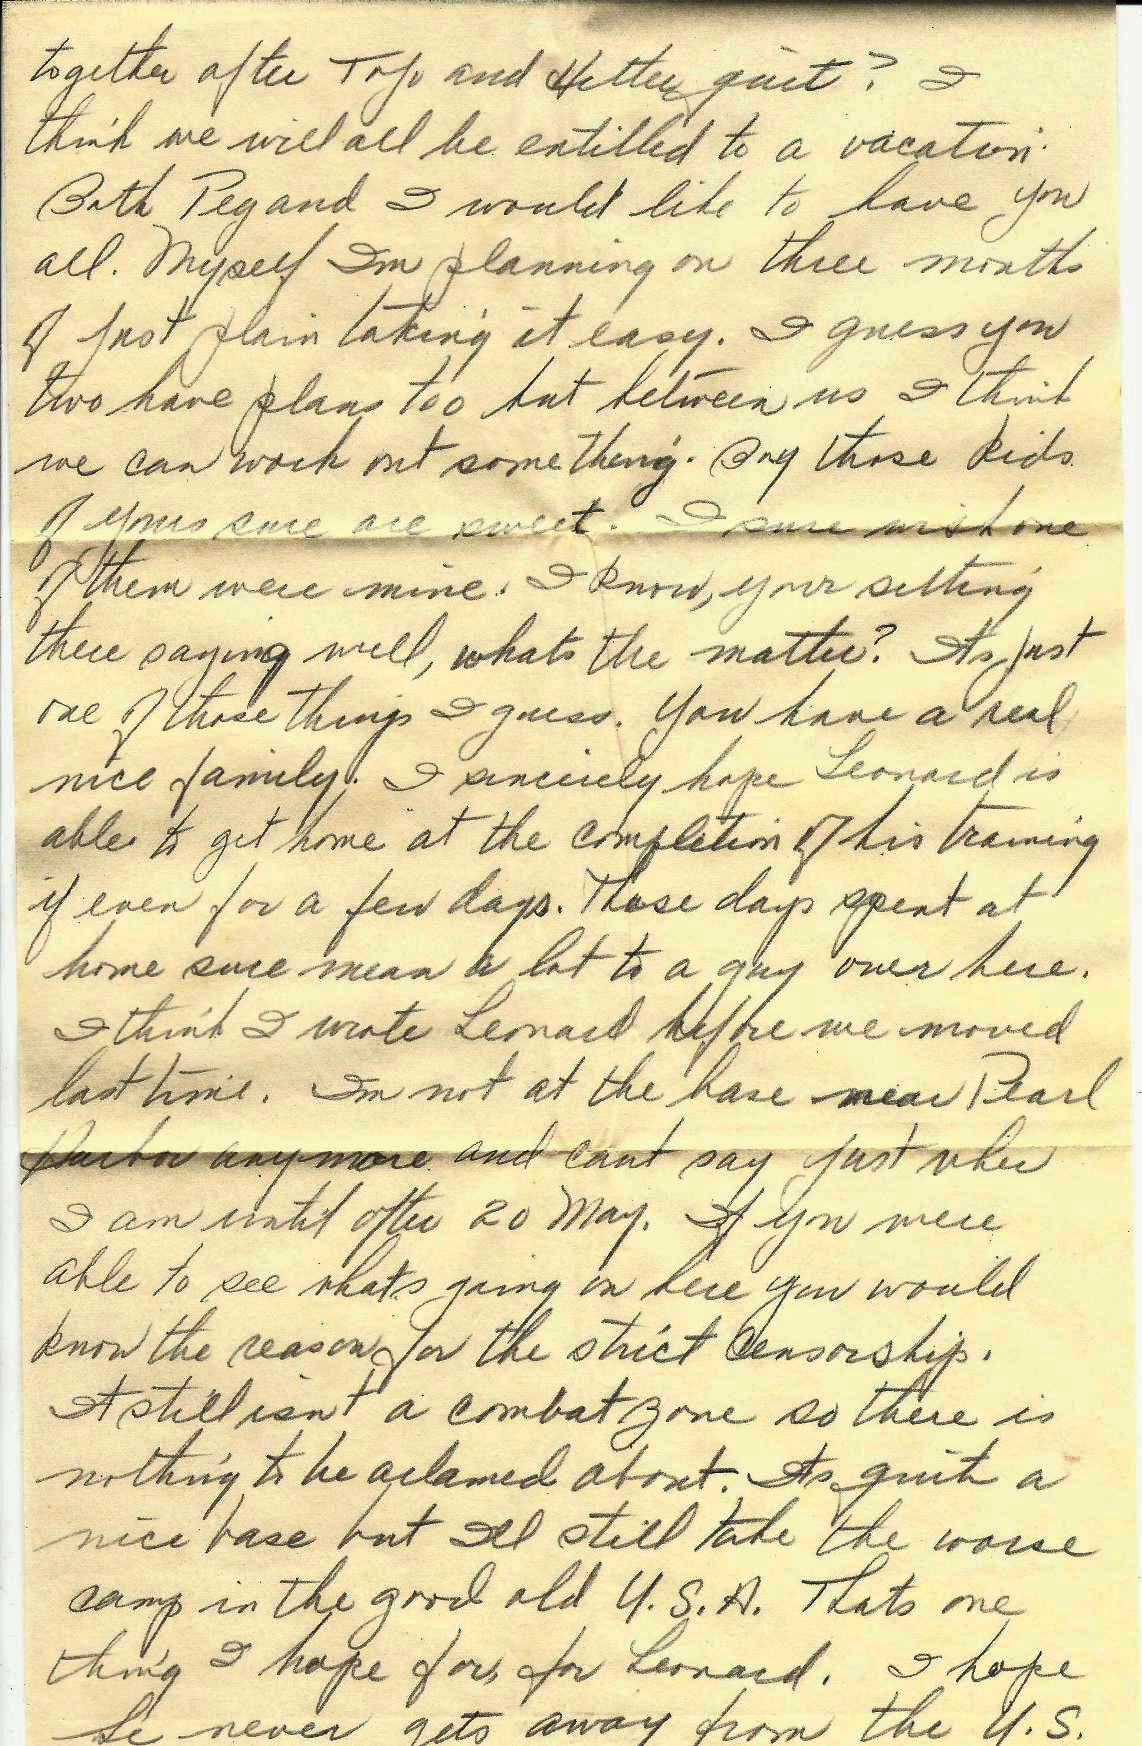 together after Tojo and Hitler quit? I
think we will all be entitled to a vacation.
Both Peg and I would like to have you
all. Myself Im planning on three months
of just plain taking it easy. I guess you
two have plans too but between us I think
we can work out something. Boy those kids
of yours sure are sweet. I sure wish one
of them were mine. I know, your setting
there saying well, whats the matter? Its just
one of those things I guess. You have a real
nice family. I sincerely hope Leonard is
able to get home at the completion of his training
if even for a few days. Those days spent at
home sure mean a lot to a guy over here.
I think I wrote Leonard before we moved
last time. Im not at the base near Pearl
Harbor anymore and cant say just wher
I am until after 20 May. If you were
able to see whats going on here you would
know the reason for the strict censorship.
It still isn't a combat zone so there is
nothing to be aclamed about. Its quite a
nice base but Ill still take the worse
camp in the good old U.S.A. Thats one
thing I hope for, for Leonard. I hope
he never gets away from the U.S.